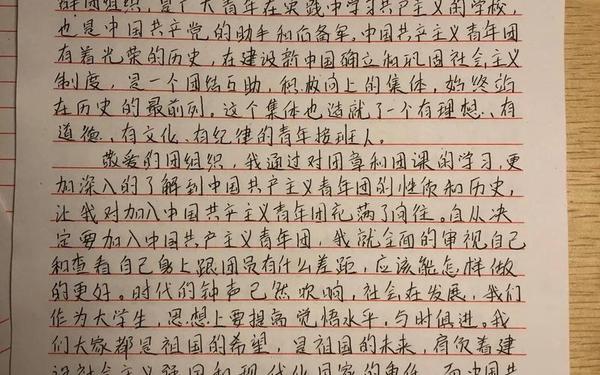 群团组织,是广大青年在实践中学习共产主义的学校,
也是中国共产党的助手和后备军。中国共产主义青年团
有着光荣的历史,在建设新中国确立和巩固社会主义
制度,是一个团结互助,积极向上的集体,始终站
在历史的最前列。这个集体也造就了一个有理想、有
道德、有文化、有纪律的青年接班人。
敬爱的团组织,我通过对团章和团课的学习,更
加深入的了解到中国共产主义青年团的性质和历史,
让我对加入中国共产主义青年团充满了向往。自从决
定要加入中国共产主义青年团,我就全面的审视自己
和查看自己身上跟团员有什么差距,应该能怎样做
的更好。时代的钟声已然吹响,社会在发展,我们
作为大学生,思想上要提高觉悟水平,与时俱进。我
们大家都是祖国的希望,是祖国的未来,肩负着建
设社会主义强国和现代化国家的重任,而中国共